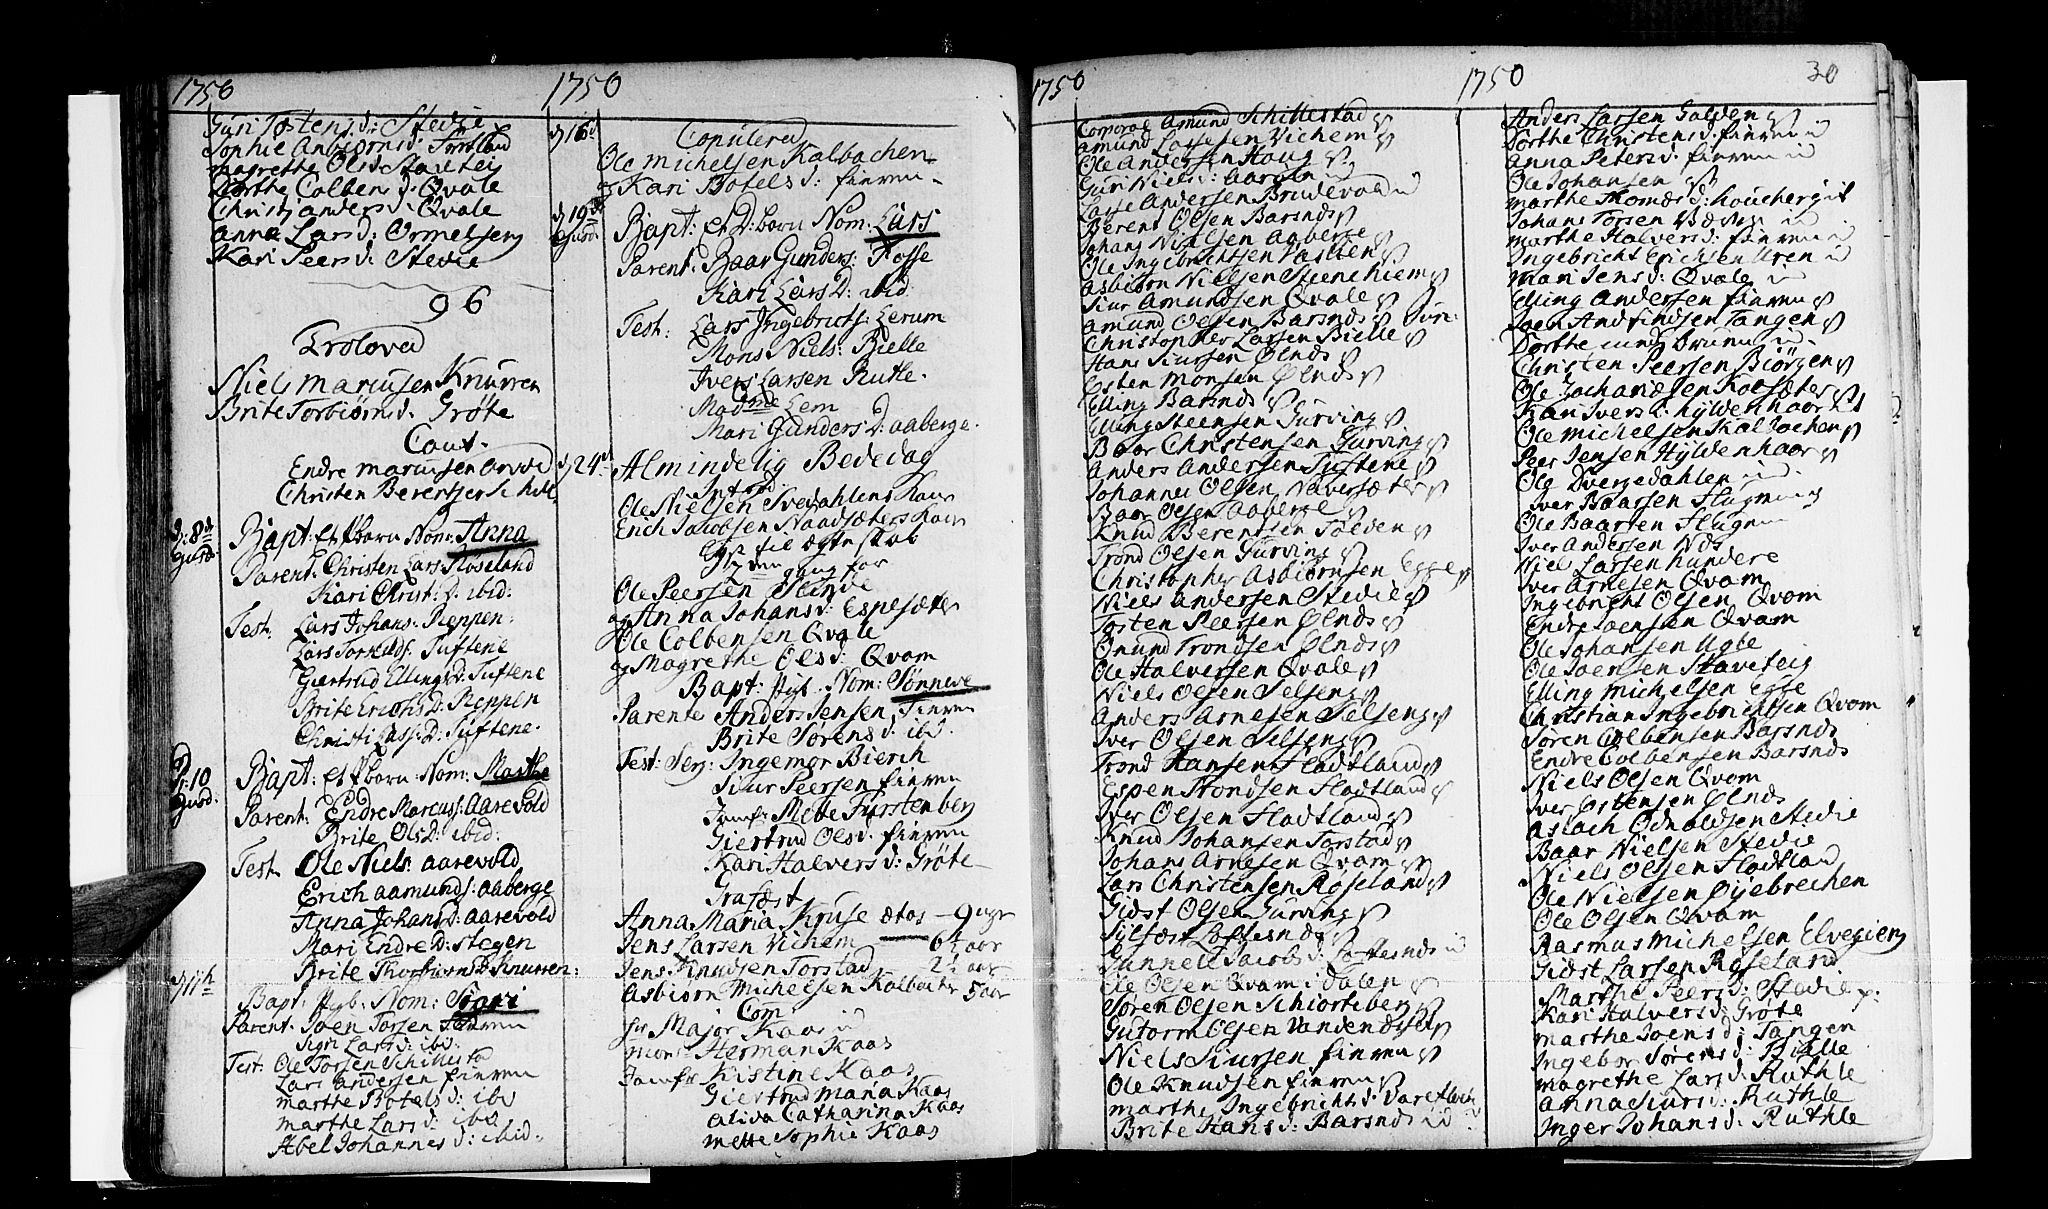 1750
Guri Tostensd: Stedie
Sophie Anbiörnsd:
Magrethe Olsd: Stavteig
Dorthe Colbensd: Qvale
Christj Andersd: Qvale
Anna Larsd: Ormelseng
Kari Peersd: Stedie
96
Troloved
Niels Marcusen Knurren
Brite Torbiörnsd: Gröte
Caut.
Endre Marcusen
Christen Bertsen
d: 8de Gurd:
Bapt: et ? barn Nom: Anna
Parent: Christen Lars: Röseland
Kari Christ: D: ibid:
Test: Lars Johans: Reppen:
Lars Torkilds: Tuftene
Giertrud Ellings D: Tuftene
Brite Erichs D: Reppen
Christi Lass: D: Tuftene.
D: 10 Gurd:
Bapt: et barn Nom: Marthe
Parent: Endre Marcuss: Aarevold
Brite Ols D: ibid:
Test Ole Niels: Aarevold
Erich Aamunds: Aaberge
Anna Johans D: Aarevold
Mari Endre D: Stegen
Brite Thorbiörns D: Knurren:
d 11th
Bapt: Nom: Sigri
Parent: Joen Torsen Finren
Sigri Larsd: ibid:
Test: Ole Torsen Schillesta
Lars Andersen Finren
Marthe Botelsd: ibd
Marthe Larsd: ibd
Abel Johannesd: ibid:
1750
d 16d
Copulered
Ole Michelsen Kalbachen
og Kari Botelsd: Finren
d 19de Gurd:
Bapt: et D: barn Nom: Lars
Parent: Baar Gunders: Fosse
Kari Lars D: ibid
Test: Lars Ingebrichts: Lerum
Mons Niels: Bielle
Ivers Larsen Rutle.
Madme Lem
Mari Gunders D: Aaberge.
d 24d
Almindelig Bededag
Introd.
Ole Nielsen Svedahlens Kone
Erich Jacobsen Naadsæters Kone
Lyst til ægteskab
1ste gang for
Ole Peersen Slinde
og Anna Johansd: Espesæter
Ole Colbensen Qvale
og Magrethe Olsd: Qvam
Bapt: Nom: Sönneve
Parente Anders Jensen, Finren
Brite Sörensd: ibd.
Test: Serj: Ingemar Bierch
Siur Peersen Finren
Jomfr: Mette Fürstenberg
Giertrud Olsd: Finren
Kari Halversd: Gröte
Grafæst
Anna Maria Kruse ætas – 9 ugr
Jens Larsen Vichem 6½ aar
Jens Knudsen Torstad 2½ aar
Asbiörn Michelsen Kalbacker 5 aar
Com
hr Major Kaas
Mons: Herman Kaas
Jomfr Kistine Kaas
Giertrud Maria Kaas
Aliva Catharina Kaas
Mette Sophie Kaas
1750
Corporal Amund Schillestad
Amund Lassesen Vichem
Ole Andersen Houg
Guri Nielsd: Aaröen
Lasse Andersen Brudevold
Berent Olsen Barsnds
Johans Nielsen Aaberge
Ole Ingebrichtsen
Asbiörn Nielsen Steenehiem
Siur Amundsen Qvale
Amund Olsen Barsnds
Christopher Larsen Bielle
Hans Siursen Ölnds
Esten Monsen Ölnds
Elling Barsnds
Elling Steensen Gurving
Baar Christensen Gurving
Anders Andersen Tuftene
Johannes Olsen Naversæter
Baar Olsen Aaberge
Knud Berentsen Tolden
Trond Olsen Gurving
Christopher Asbiörnsen Egge
Niels Andersen Stedie
Tosten Peersen Ölnds
Onund Trondsen Ölnds
Ole Halversen Qvale
Niels Olsen Selseng
Anders Arnesen Selseng
Iver Olsen Selseng
Trond Hansen Fladtland
Espen Trondsen Fladtland
Iver Olsen Fladtland
Knud Johansen Torstad
Johans Arnesen Qvam
Lars Christensen Röseland
Gidst Olsen Gurving
Sylfæst Loftesnds
Gunnele Jacobsd: Loftesnds
Ole Olsen Qvam i Dalen
Sören Olsen Schiorteberg
Gutorm Olsen Vandendset
Niels Siursen Finren
Ole Knudsen Finren
Marthe Ingebrichtsd:
Brite Hansd: Barsnds
1750
30
Anders Larsen Galden
Dorthe Christensd: Finren
Anna Petersd: Finren
Ole Johansen
Marthe Thomæsd:
Johans Torsen
Marthe Halversd: Finren
Ingebricht Erichsen Uren
Mari Jensd: Qvale
Elling Andersen Finren
Joen Andfindsen Tangen
Dorthe
Christen Peersen Biörgen
Ole Zachariæsen Kolsæter
Kari Iversd: Hyldenhaar
Ole Michelsen Kalbachen
Peer Jensen Hyldenhaar
Ole Dvergedahlen
Iver Baarsen Flugem
Ole Baarsen Flugem
Iver Andersen Nds
Niels Larsen Hundere
Iver Arnesen Qvam
Ingebricht Olsen Qvam
Endre Joensen Qvam
Ole Johansen Ugte
Ole Joensen Stavteig
Elling Michelsen Egge
Christian Ingebrichtsen Qvam
Sören Colbensen Barsnds
Endre Colbensen Barsnds
Niels Olsen Qvam
Iver Östensen Ölnds
Aslach Odnoldsen Stedie
Baar Nielsen Stedie
Niels Olsen Fladtland
Ole Nielsen Öyebrechen
Ole Olsen Qvam
Rasmus Michelsen Elvegieng
Gidst Larsen Röseland
Marthe Peersd: Stedie
Kari Halversd: Gröte
Marthe Joensd: Tangen
Ingebor Sörensd: Bielle
Magrethe Larsd: Ruthle
Anna Siursd: Ruthle
Inger Johansd: Ruthle